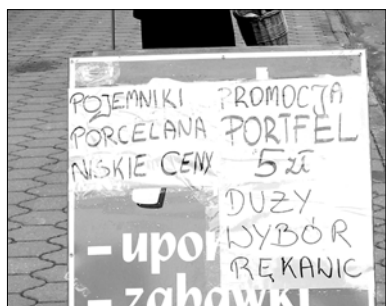 POJEMNIKI
PORCELANA
NISKIE CENY
PROMOCJA
PORTFEL
5 zł
DUZY
WYBÓR
RĘKAWIC
– upom
– zabawki